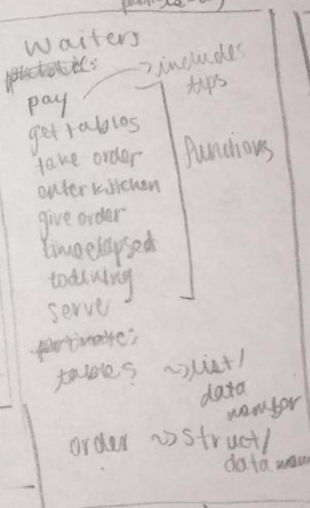 Waiters
pay → includes tips
get tables
take order
enter kitchen
give order
time elapsed
to dining
serve
functions
private:
tables ~> list/
data
member
order ~> struct/
data mem